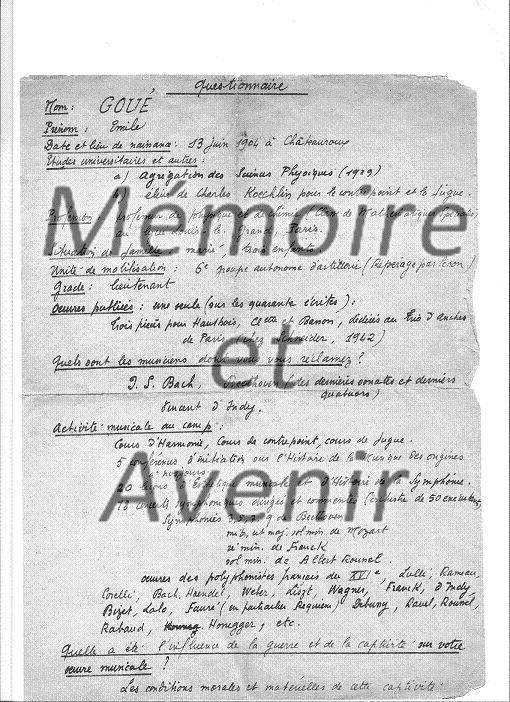 Questionnaire
Nom : GOUÉ
Prénom : Emile
Date et lieu de naissance : 13 juin 1904 à Châteauroux
Etudes universitaires et autres :
a) Agrégation des Sciences Physiques (1929)
élève de Charles Koechlin pour le contrepoint et la fugue.
Mémoire
Profession : professeur de physique et de chimie
au Lycée Louis le Grand, Paris.
Situation de famille : marié, trois enfants
Unité de mobilisation : 6e groupe autonome d'artillerie (Repérage par le son)
Grade : lieutenant
Oeuvres publiées : une seule (sur les quarante écrites) :
Trois pièces pour Hautbois, Cl ette et Basson, dédiées au Trio d'Anches
de Paris (chez Schneider, 1942)
et
Quels sont les musiciens dont vous vous réclamez ?
J. S. Bach, Beethoven (des dernières sonates et derniers
quatuors)
Vincent d'Indy.
Activité musicale au camp :
Cours d'Harmonie, Cours de contrepoint, cours de fugue.
5 conférences d'initiation sur l'Histoire de la Musique des origines
à nos jours
Avenir
20 leçons d'Esthétique musicale et d'Histoire de la Symphonie.
concerts symphoniques dirigés et commentés (orchestre de 50 exécutants)
Symphonies 9 de Beethoven
mib, ut maj. sol min. de Mozart
ré min. de Franck
sol min. de Albert Roussel
oeuvres des polyphonistes français du XVIe, Lulli, Rameau,
Corelli, Bach, Haendel, Weber, Liszt, Wagner, Franck, d'Indy,
Bizet, Lalo, Fauré (en particulier Requiem), Debussy, Ravel, Roussel,
Rabaud, Honegger, etc.
Quelle a été l'influence de la guerre et de la captivité sur votre
oeuvre musicale ?
Les conditions morales et matérielles de cette captivité